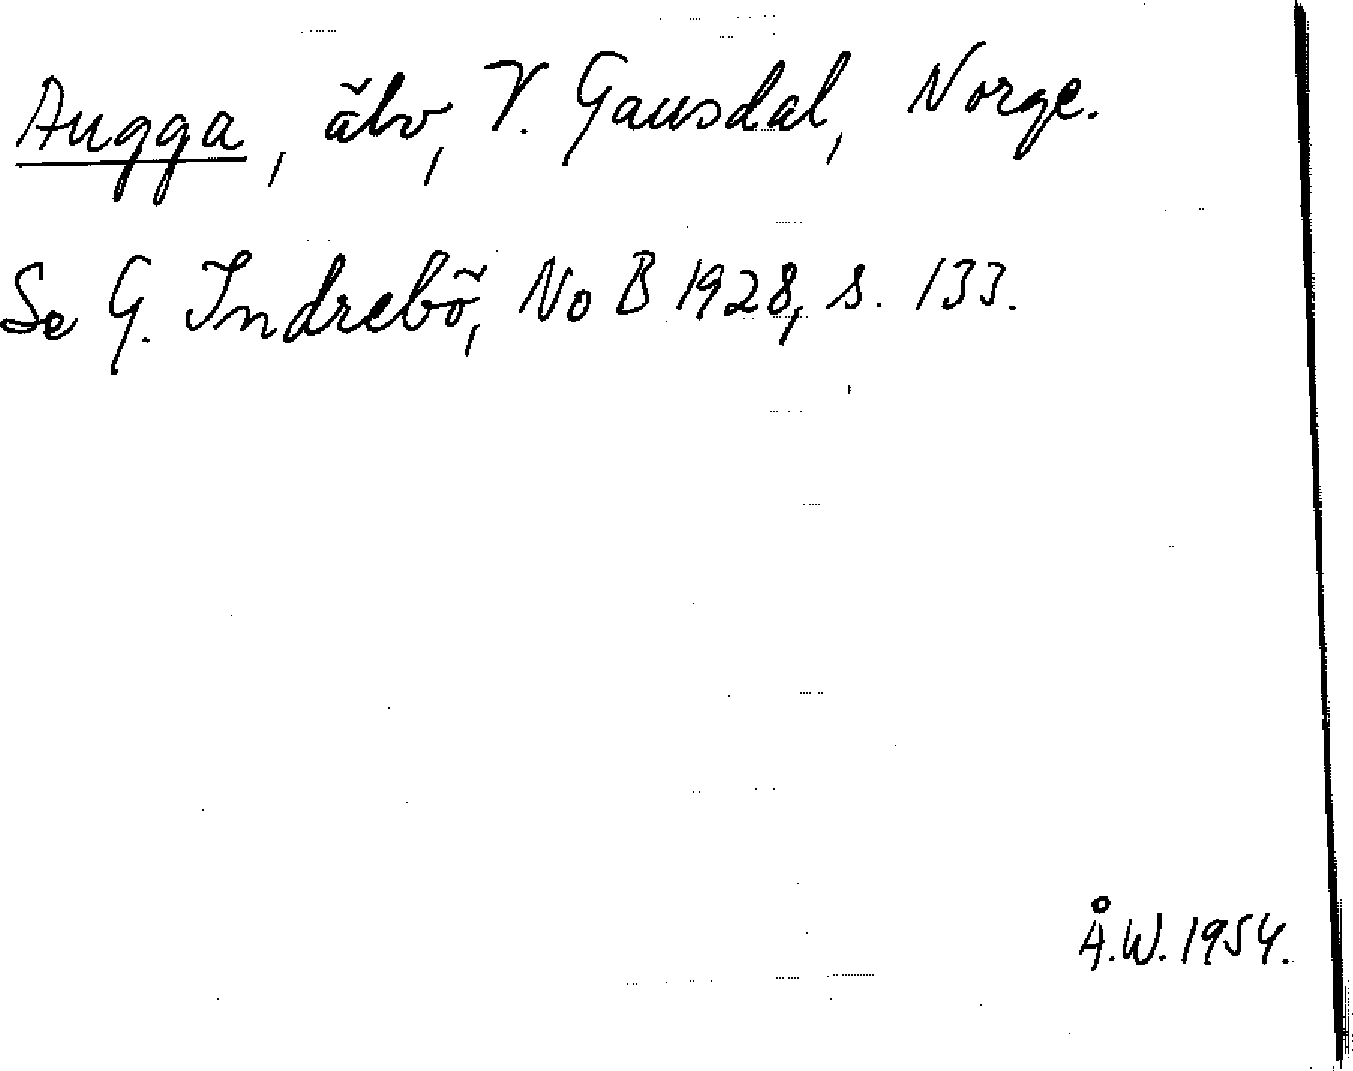 Augga, älv, V. Gausdal, Norge.
Se G. Indrebö, NoB 1928, s. 133.
Å.W. 1954.